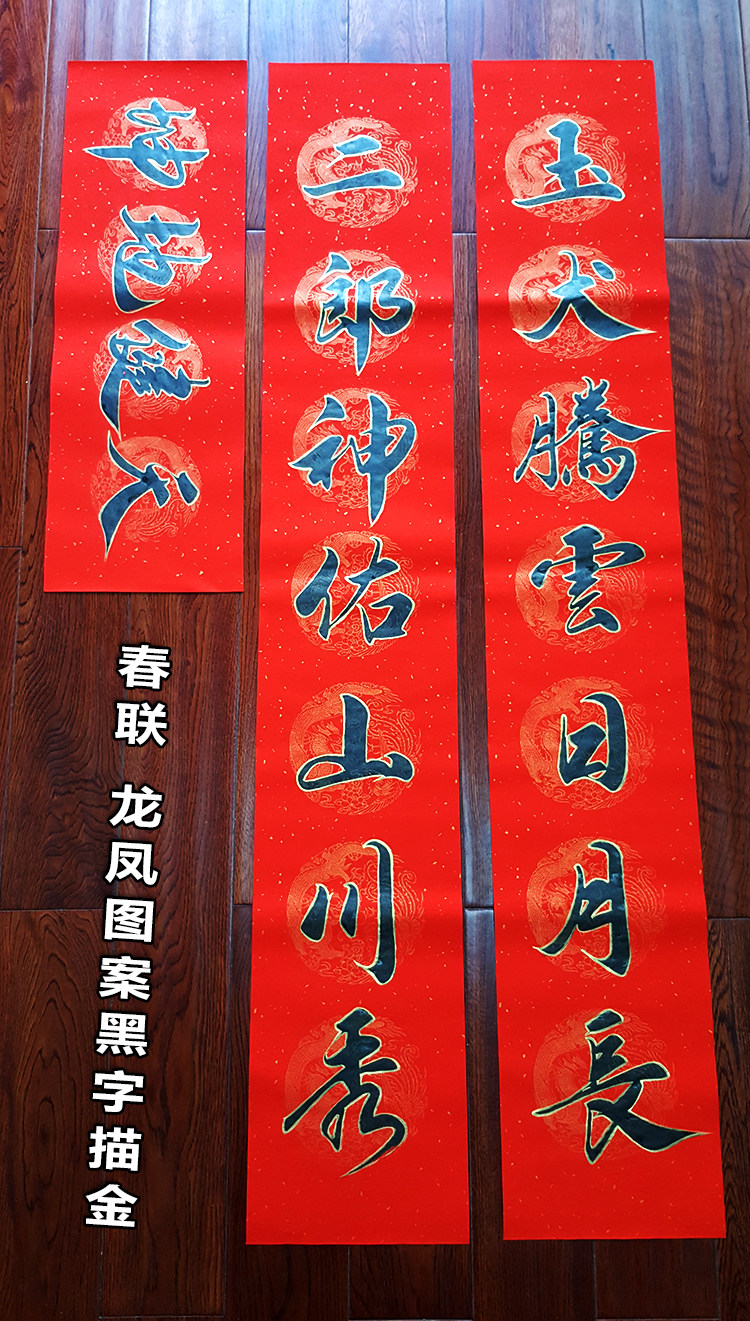 玉犬騰雲日月長
二郎神佑山川秀
天健地坤
春联 龙凤图案黑字描金